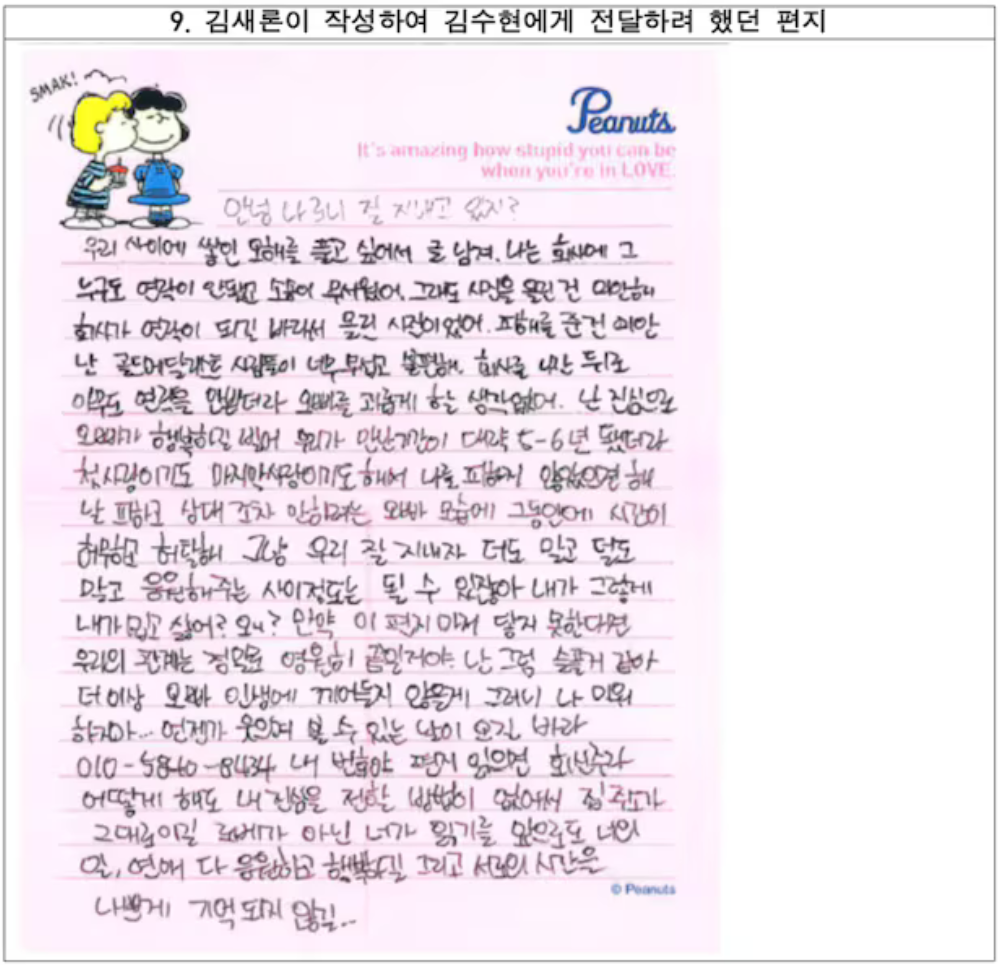 9. 김새론이 작성하여 김수현에게 전달하려 했던 편지
SMAK!
Peanuts
It's amazing how stupid you can be
when you're in LOVE.
안녕 나 잘 지내고 있지?
우리 사이에 쌓인 오해를 풀고 싶어서 글 남겨. 나는 회사에 그
누구도 연락이 안됐고 소송이 무서웠어. 그래도 사진을 올린 건 미안해
회사가 연락이 되길 바라서 올린 사진이었어. 피해를 준건 미안
난 골드메달리스트 사람들이 너무 무섭고 불편해. 회사를 나간 뒤로
아무도 연락을 안받더라 오빠를 괴롭게 하는 생각없어. 난 진심으로
오빠가 행복하길 빌어 우리가 만난기간이 대략 5-6년 됐더라
첫사랑이기도 마지막사랑이기도 해서 나를 피하지 않았으면 해
날 피하고 상대 조차 안하려는 오빠 모습에 그동안에 시간이
허무하고 허탈해 그냥 우리 잘 지내자 더도 말고 덜도
말고 응원해주는 사이정도는 될 수 있잖아 내가 그렇게
내가 밉고 싫어? 왜? 만약 이 편지 마저 닿지 못한다면
우리의 관계는 정말로 영원히 끝일거야. 난 그럼 슬플거 같아
더이상 오빠 인생에 끼어들지 않을게 그러니 나 미워
하지마... 언젠가 웃으며 볼 수 있는 날이 오길 바라
010-5840-8434 내 번호야 편지 읽으면 회신주라
어떻게 해도 내 진심을 전할 방법이 없어서 집 주소가
그대로이길 로베가 아닌 너가 읽기를 앞으로도 너의
일, 연애 다 응원하고 행복하길 그리고 서로의 시간을
나쁘게 기억되지 않길..
© Peanuts